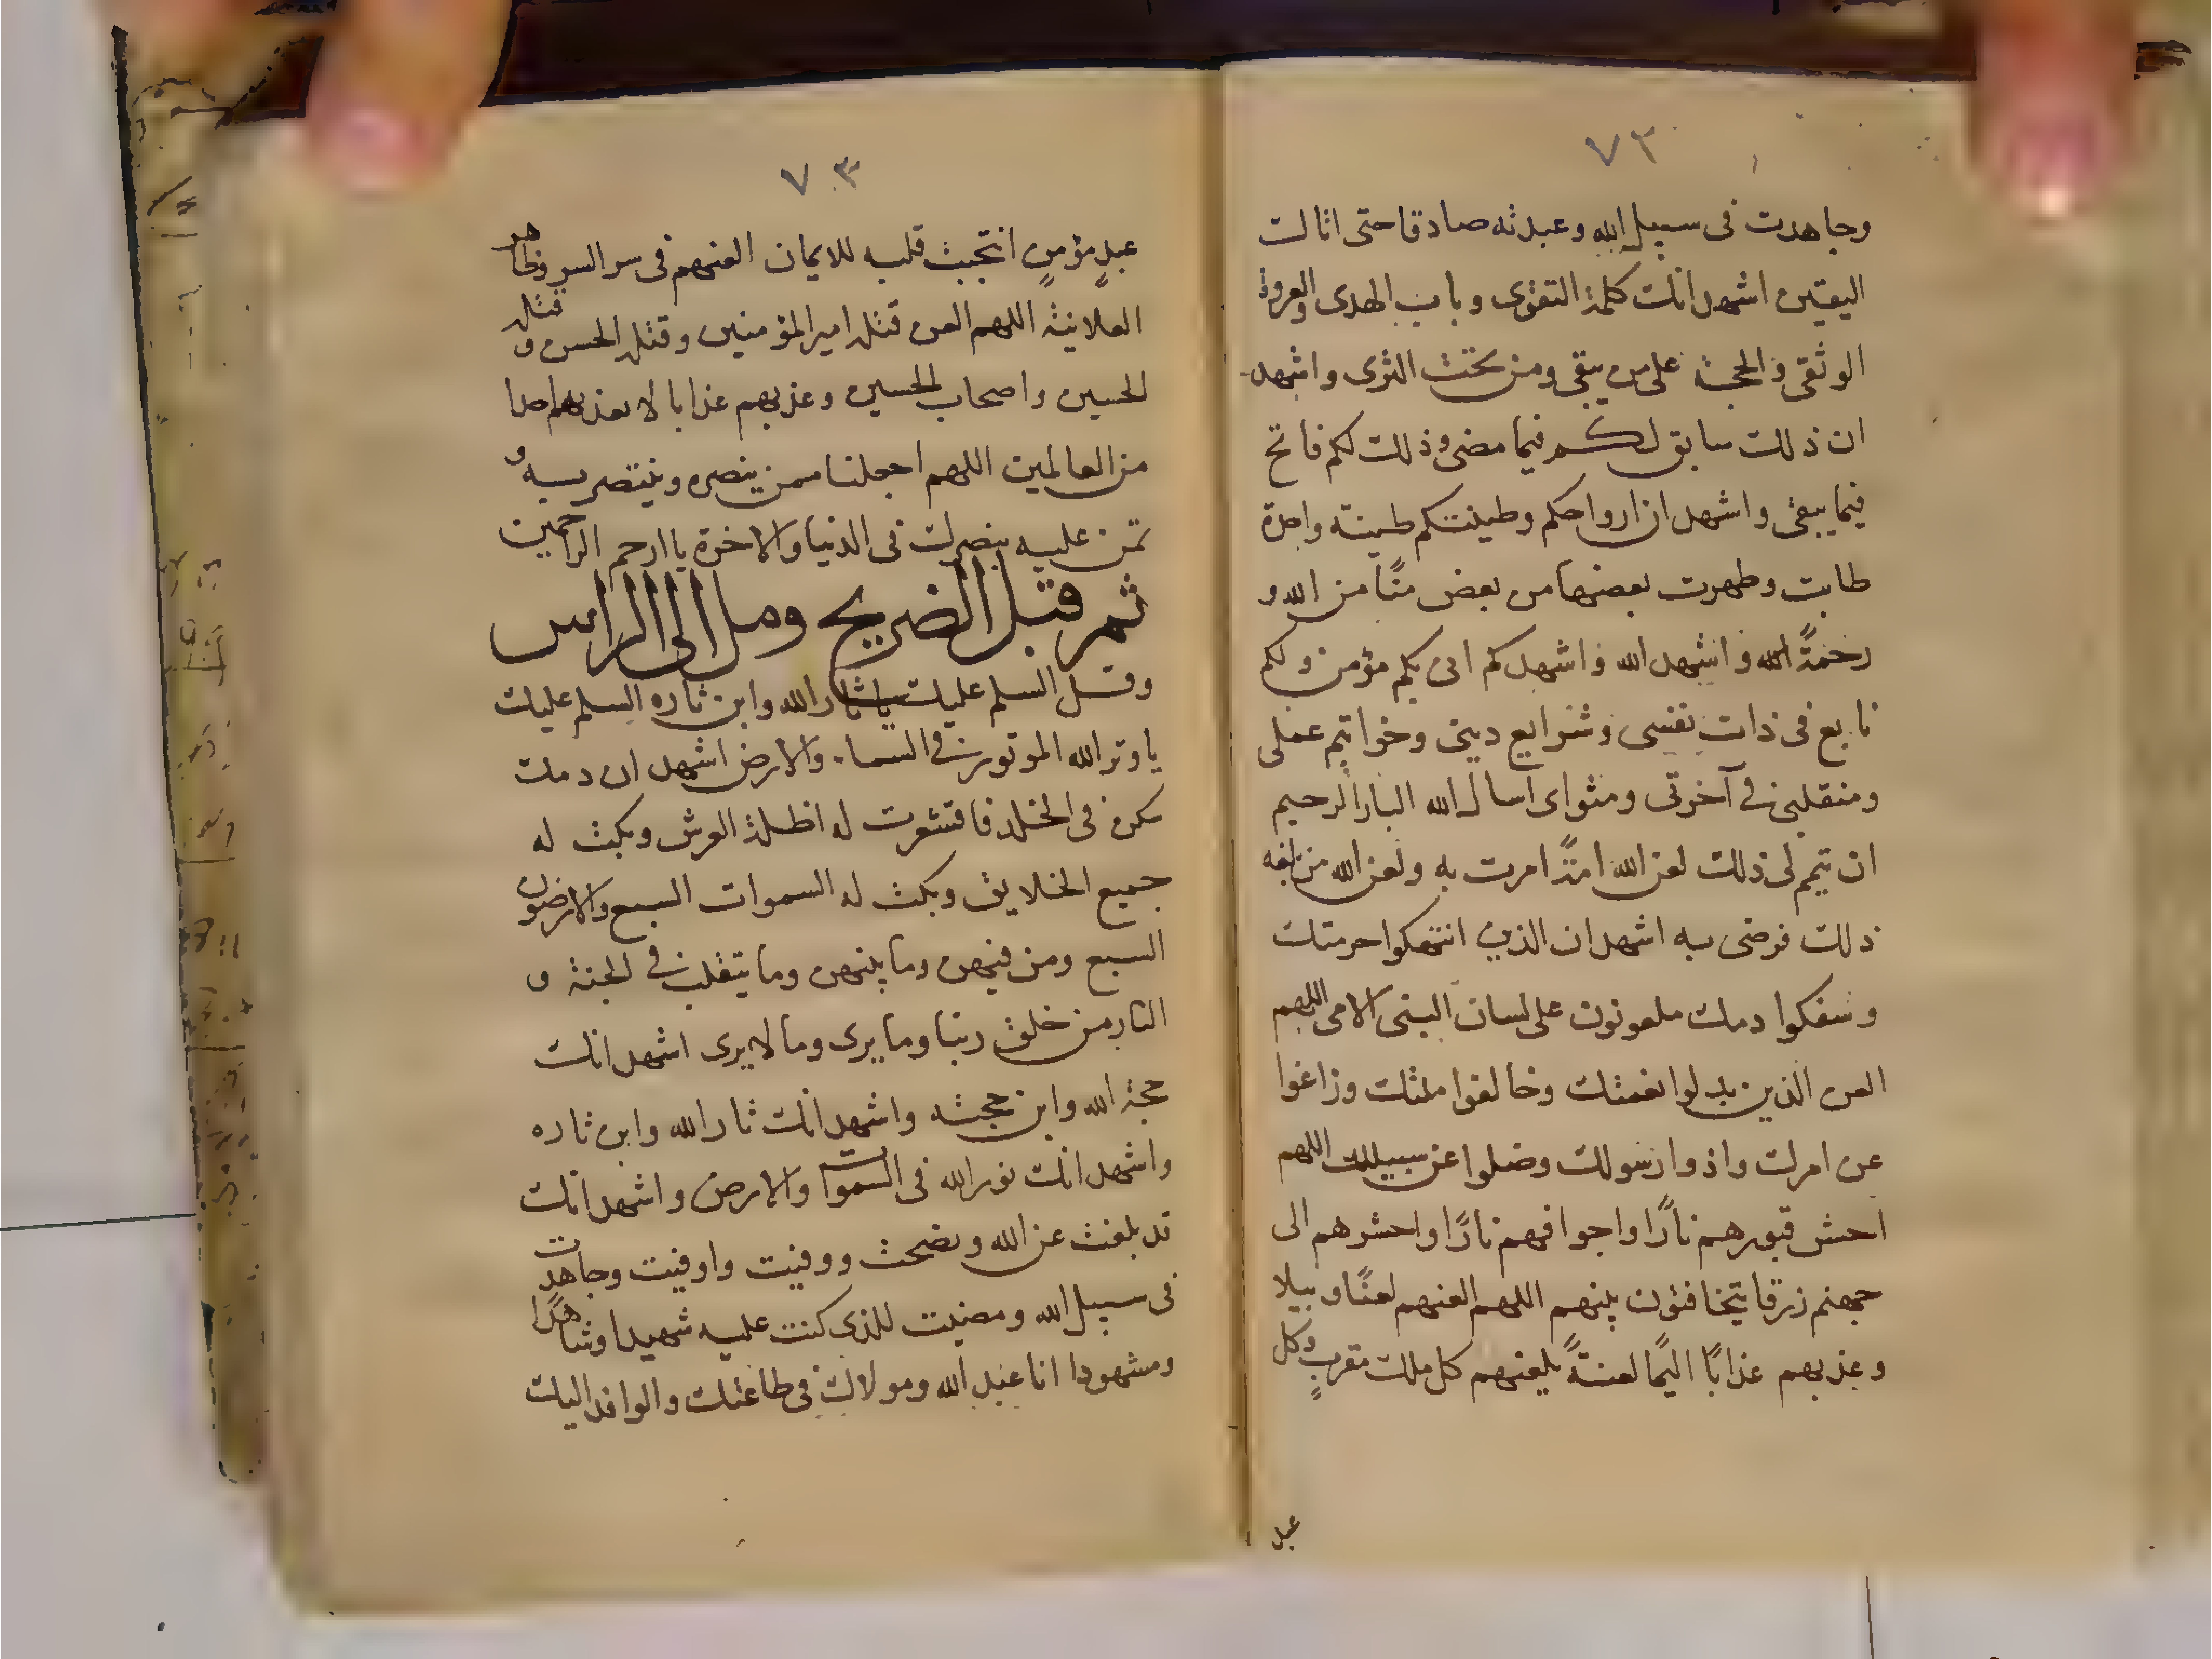 ٧٢
وجاهدت فى سبيل الله وعبدته صادقا حتى اتاك
اليقين اشهد انك كلمة التقوى وباب الهدى والعروة
الوثقى والحجة على من يبقى ومن تحت الثرى واشهد
ان ذلك سابق لكم فيما مضى وذلك لكم فاتح
فيما يبقى واشهد ان ارواحكم وطينتكم طينة واحدة
طابت وطهرت بعضها من بعض منًا من الله و
رحمةً الله واشهد الله واشهدكم انى بكم مؤمن ولكم
تابع فى ذات نفسى وشرايع دينى وخواتيم عملى
ومنقلبى فى آخرتى ومثواى اسال الله البار الرحيم
ان يتم لى ذلك لعن الله امةً امرت به ولعن الله من بلغه
ذلك فرضى به اشهد ان الذين انتهكوا حرمتك
وسفكوا دمك ملعونون على لسان النبى الامى اللهم
العن الذين بدلوا نعمتك وخالفوا ملتك وزاغوا
عن امرك واذوا رسولك وضلوا عن سبيلك اللهم
احش قبورهم نارًا واجوافهم نارًا واحشرهم الى
جهنم زرقا يتخافتون بينهم اللهم العنهم لعنًا وبيلا
وعذبهم عذابًا اليمًا لعنةً يلعنهم كل ملك مقرب وكل
عبد
٧٣
عبدٍ مؤمنٍ انتجبت قلبه للايمان العنهم فى سر السر وظاهر
العلانية اللهم العن قتلة امير المؤمنين وقتلة الحسن و قتلة
الحسين واصحاب الحسين وعذبهم عذابا لا تعذبه احدا
من العالمين اللهم اجعلنا ممن ينصره وينتصر به و
تمن عليه بنصرك فى الدنيا والاخرة يا ارحم الراحمين
ثم قبل الضريح ومل الى الراس
وقل السلم عليك يا ثار الله وابن ثاره السلم عليك
يا وتر الله الموتور فى السماء والارض اشهد ان دمك
سكن فى الخلد فاقشعرت له اظلة العرش وبكت له
جميع الخلايق وبكت له السموات السبع والارضون
السبع ومن فيهن وما بينهن وما يتقلب فى الجنة و
النار من خلق ربنا وما يرى وما لا يرى اشهد انك
حجة الله وابن حجته واشهد انك ثار الله وابن ثاره
واشهد انك نور الله فى السموات والارض واشهد انك
قد بلغت عن الله ونصحت ووفيت واوفيت وجاهدت
فى سبيل الله ومضيت للذى كنت عليه شهيدا وشاهدًا
ومشهودا انا عبد الله ومولاك فى طاعتك والوافد اليك